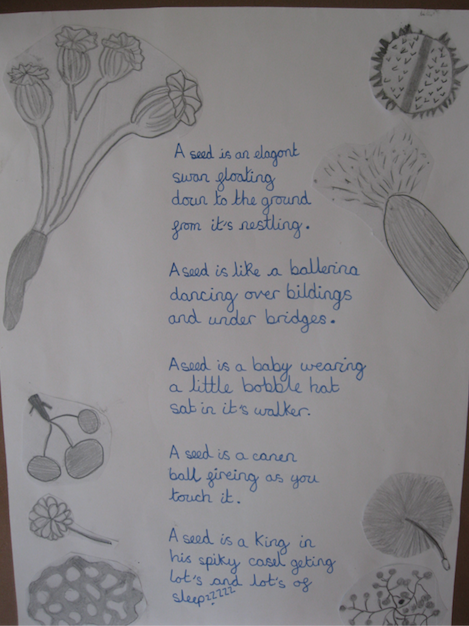 A seed is an elagont
swan floating
down to the ground
from it's nestling.
A seed is like a ballerina
dancing over bildings
and under bridges.
A seed is a baby wearing
a little bobble hat
sat in it's walker.
A seed is a canen
ball fireing as you
touch it.
A seed is a King in
his spiky casel geting
lot's and lot's of
sleepzzzzz